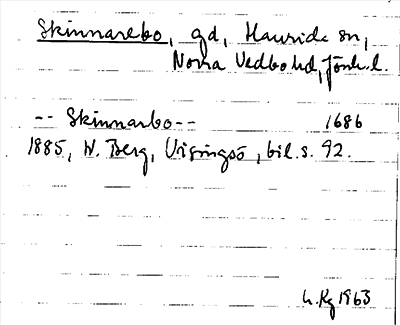 Skinnarebo, gd, Haurida sn,
Norra Vedbo hd, Jönk.l.
-- Skinnarbo -- 1686
1885, W. Berg, Visingsö, bil. s. 92.
1963